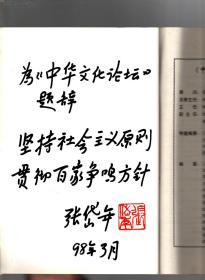 为《中华文化论坛》
题辞
坚持社会主义原则
贯彻百家争鸣方针
张岱年
98年3月